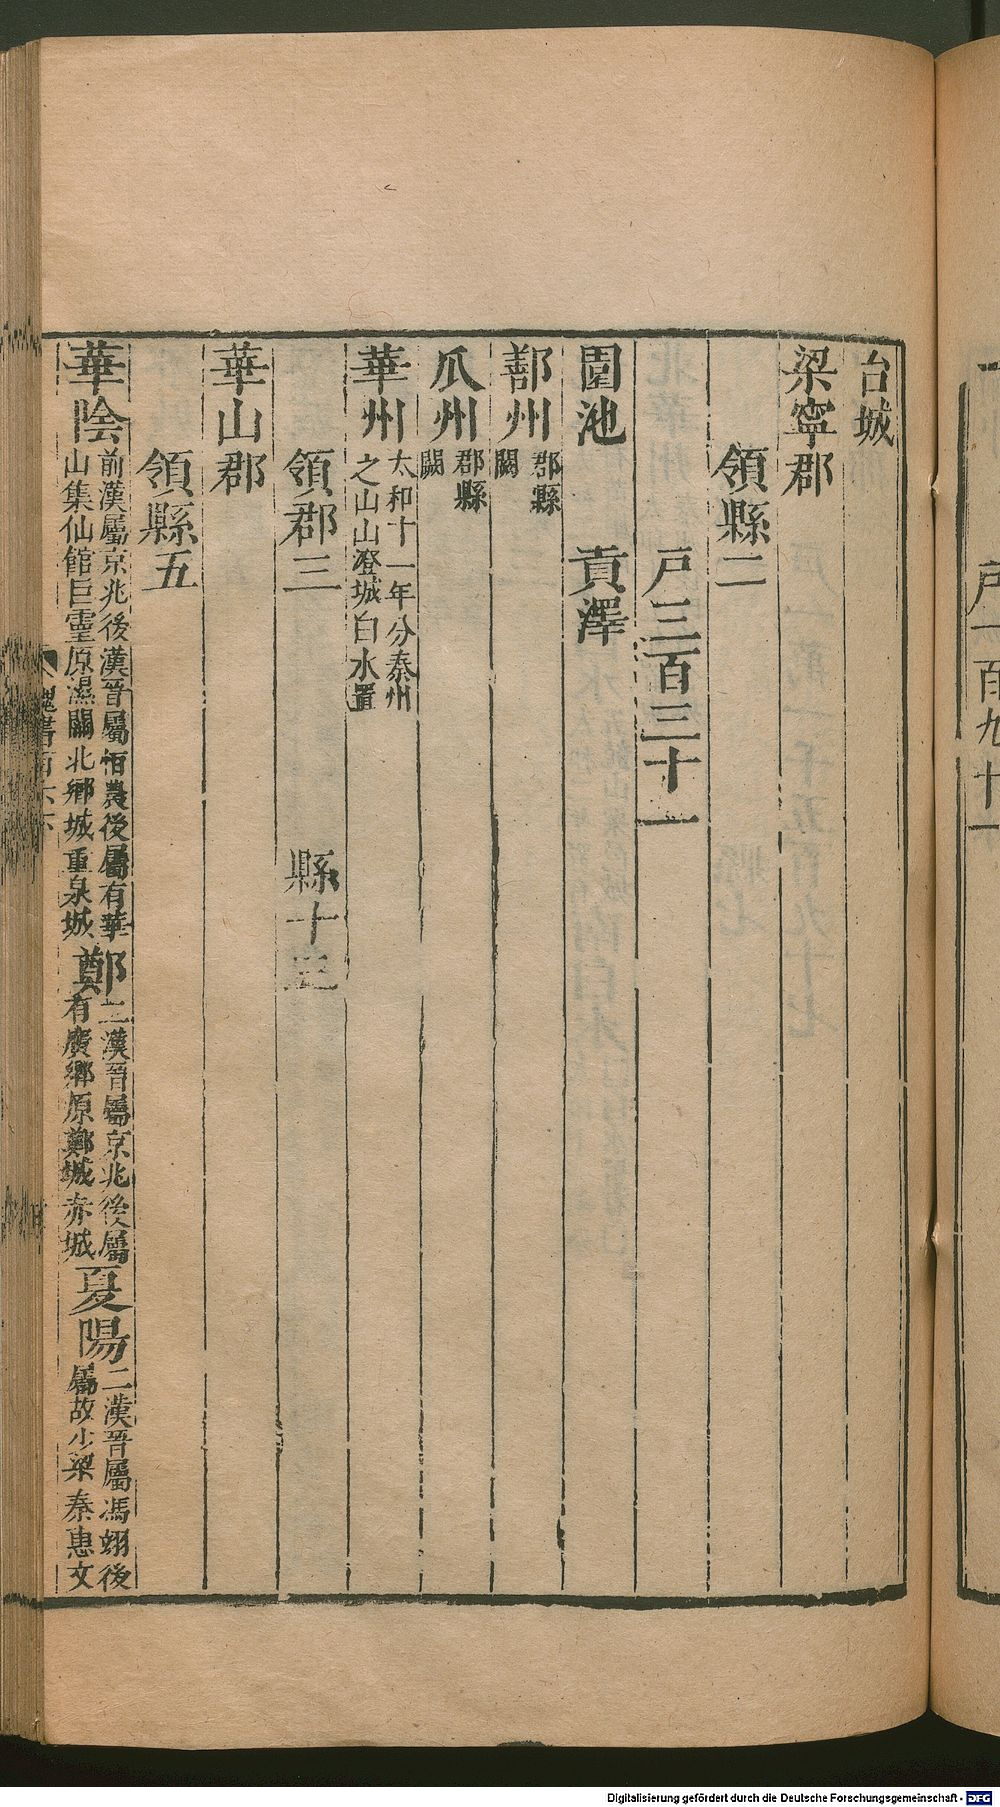 台城
梁寧郡
領縣二
戶三百三十一
園池 貢澤
鄯州 郡縣闕
瓜州 郡縣闕
華州 太和十一年分秦州之山山澄城白水置
領郡三 縣十三
華山郡
領縣五
華陰 前漢屬京兆後漢晉屬恒農後屬有華山集仙館巨靈原濕關北鄉城重泉城 鄭 二漢晉屬京兆後屬有廣鄉原鄭城赤城 夏陽 二漢晉屬馮翊後屬故少梁秦惠文
魏書百六下
戶一百九十
Digitalisierung gefördert durch die Deutsche Forschungsgemeinschaft - DFG